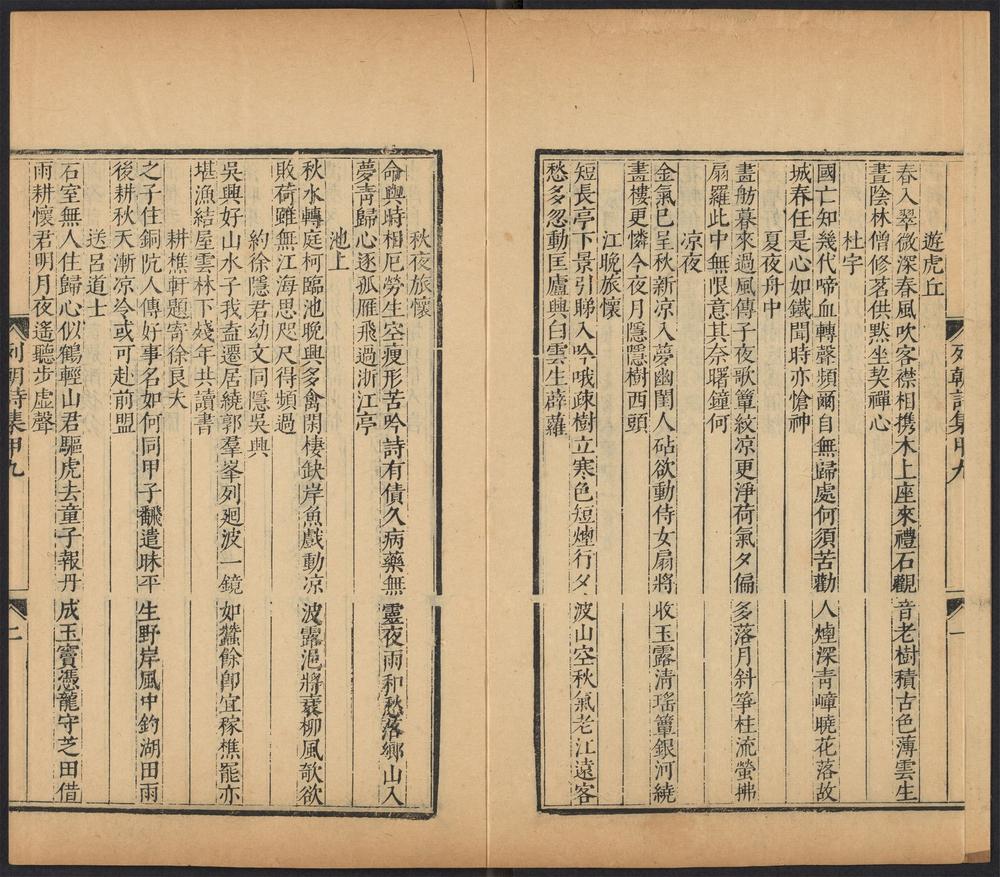 遊虎丘
春入翠微深春風吹客襟相携木上座來禮石觀音老樹積古色薄雲生
晝陰林僧修茗供黙坐契禪心
杜宇
國亡知幾代啼血轉聲頻爾自無歸處何須苦勸人煙深青嶂曉花落故
城春任是心如鐵聞時亦愴神
夏夜舟中
畫舫暮來過風傳子夜歌簟紋凉更淨荷氣夕偏多落月斜箏柱流螢拂
扇羅此中無限意其奈曙鐘何
凉夜
金氣已呈秋新凉入夢幽閨人砧欲動侍女扇將收玉露清瑶簟銀河繞
畫樓更憐今夜月隱隱樹西頭
江晚旅懷
短長亭下景引睇入吟哦疎樹立寒色短煙行夕波山空秋氣老江遠客
愁多忽動匡廬興白雲生薜蘿
列朝詩集甲九
一
秋夜旅懷
命與時相厄勞生空瘦形苦吟詩有債久病藥無靈夜雨和愁落鄉山入
夢靑歸心逐孤雁飛過浙江亭
池上
秋水轉庭柯臨池晚興多禽閑棲缺岸魚戲動凉波露浥將衰柳風欹欲
敗荷雖無江海思咫尺得頻過
約徐隱君幼文同隱吳興
吳興好山水子我盍遷居繞郭羣峯列廻波一鏡如蠶餘卽宜稼樵罷亦
堪漁結屋雲林下殘年共讀書
耕樵軒題寄徐良夫
之子住銅阬人傳好事名如何同甲子飜遣昧平生野岸風中釣湖田雨
後耕秋天漸凉冷或可赴前盟
送呂道士
石室無人住歸心似鶴輕山君驅虎去童子報丹成玉竇憑龍守芝田借
雨耕懷君明月夜遙聽步虛聲
列朝詩集甲九
二